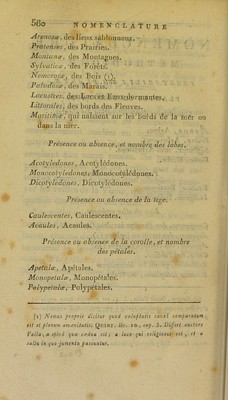 580 NOMENCLATURE
Arenosæ, des lieux sablonneux.
Pratenses, des Prairies.
Montanæ, des Montagnes.
Sylvaticæ, des Forêts.
Nemorosæ, des Bois (1).
Paludosæ, des Marais.
Lacustres, des Lacs et Eaux dormantes.
Littorales, des bords des Fleuves.
Maritimæ, qui naissent sur les bords de la mer ou
dans la mer.
Présence ou absence, et nombre des lobes.
Acotyledones, Acotylédones.
Monocotyledones, Monocotylédones.
Dicotyledones, Dicotylédones.
Présence ou absence de la tige.
Caulescentes, Caulescentes.
Acaules, Acaules.
Présence ou absence de la corolle, et nombre
des pétales.
Apetalæ, Apétales.
Monopetalæ, Monopétales.
Polypetalæ, Polypétales.
(1) Nemus proprie dicitur quod voluptatis causâ comparatum
est et plenum amænitatis;
Differt auctore
Valla, a sylvâ quæ cædua est; a luco qui religiosus est, et a
saltu in quo jumenta pascuntur.